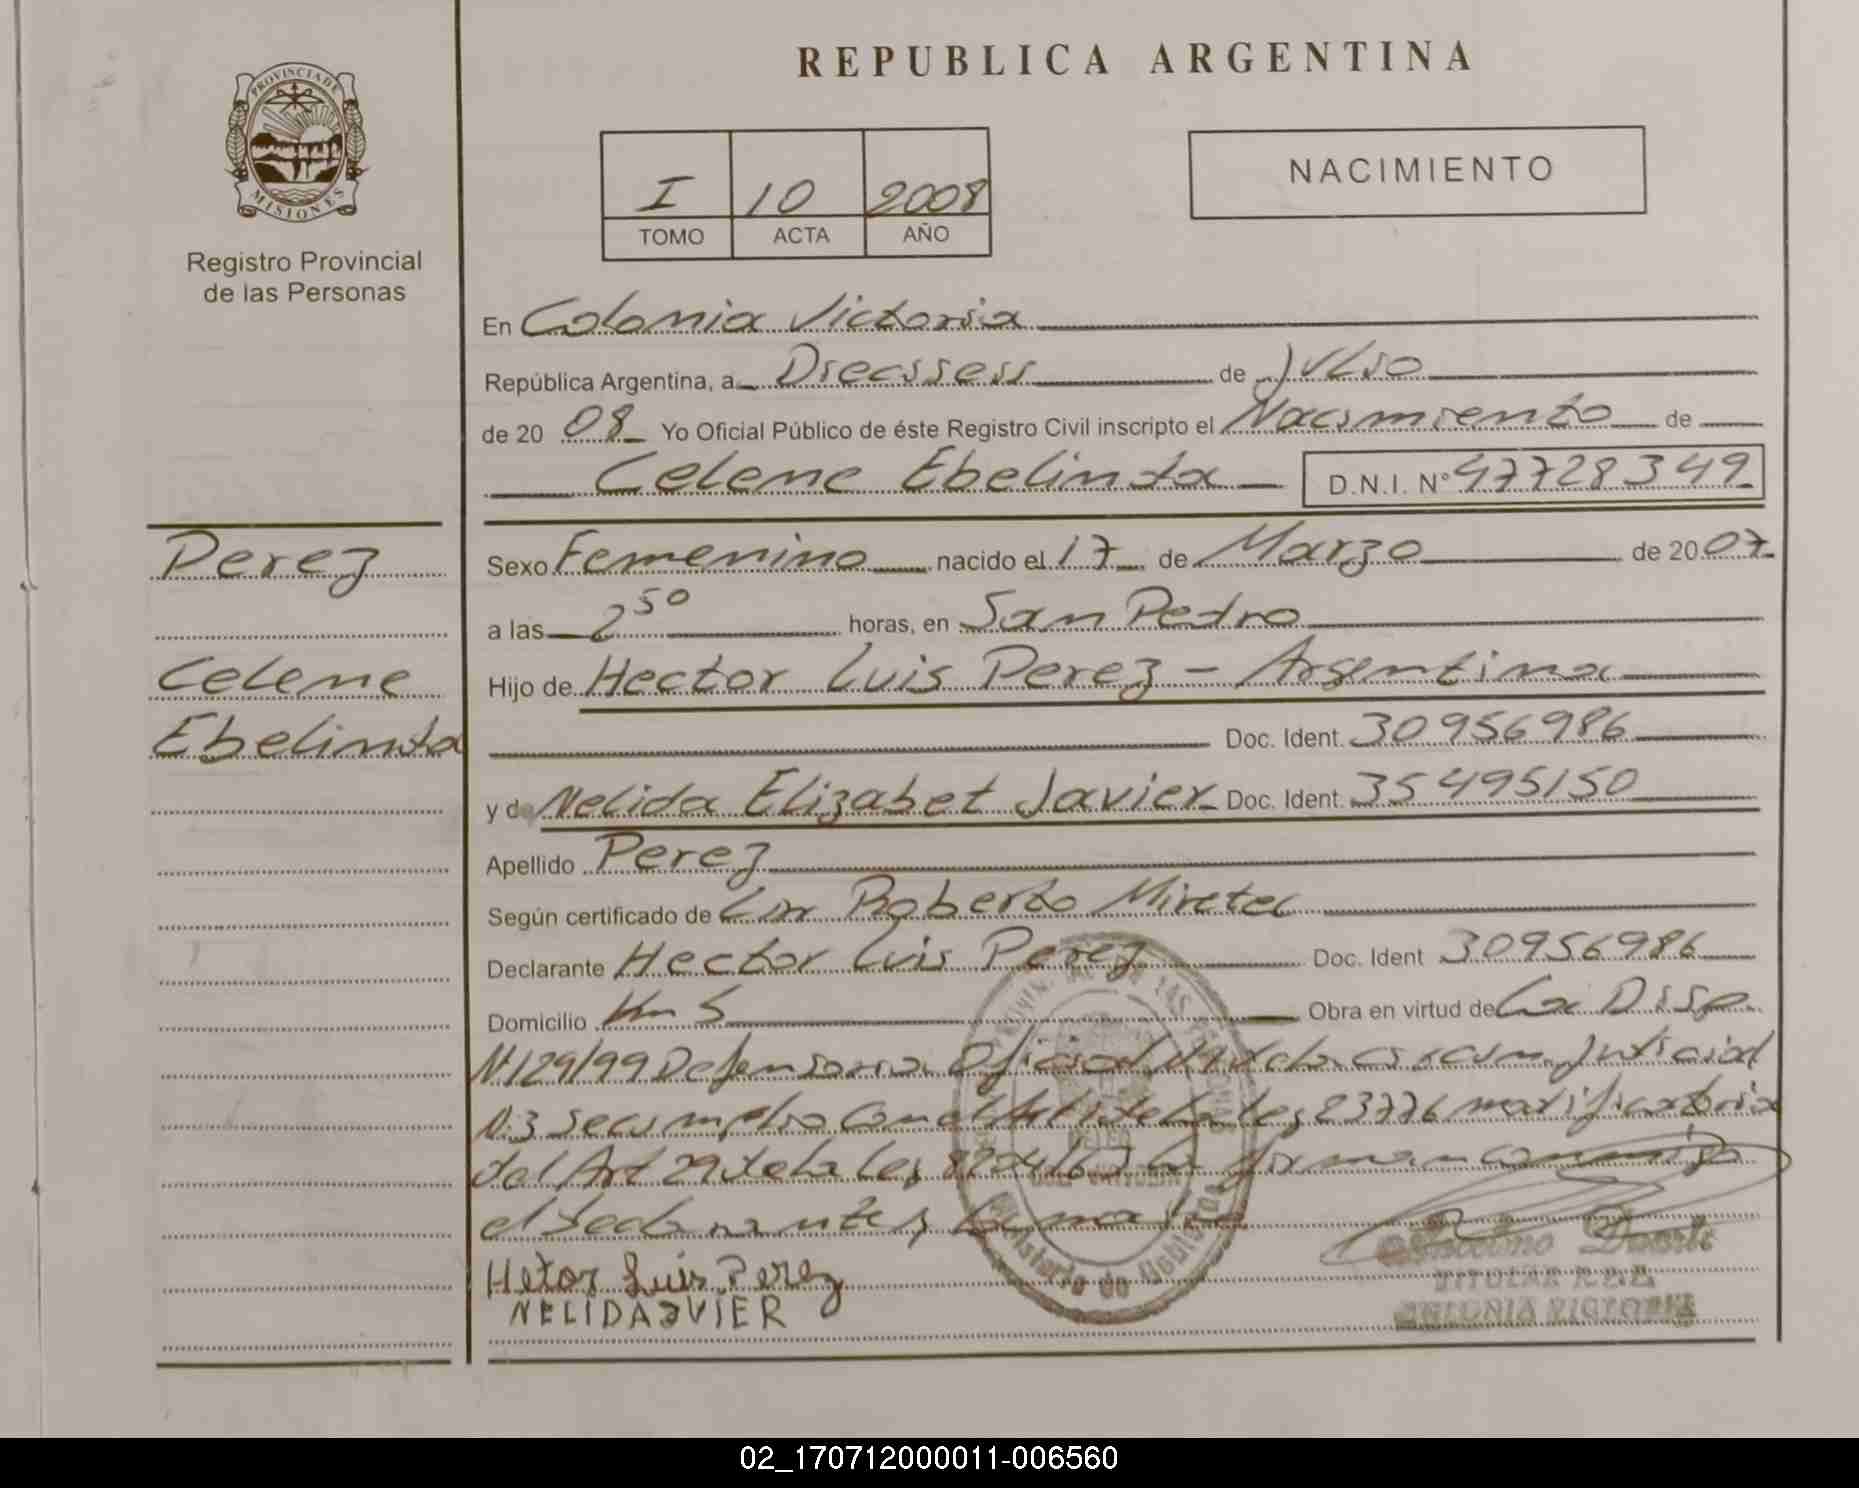 REPUBLICA ARGENTINA
PROVINCIA DE MISIONES
Registro Provincial
de las Personas
I 10 2008
TOMO ACTA AÑO
NACIMIENTO
En Colonia Victoria
República Argentina, a Diecisseis de Julio
de 2008 Yo Oficial Público de éste Registro Civil inscripto el Nacimiento de
Celene Ebelinda D.N.I. Nº 47728349
Perez
Celene
Ebelinda
Sexo Femenino nacido el 17 de Marzo de 2007
a las 2 50 horas, en San Pedro
Hijo de Hector Luis Perez - Argentina
Doc. Ident. 30956986
y de Nelida Elizabet Javier Doc. Ident. 35495150
Apellido Perez
Según certificado de Roberto
Declarante Hector Luis Perez Doc. Ident 30956986
Domicilio Km 5 Obra en virtud de La Disp.
N 129/99 Defensoria Oficial de la circum. Judicial
N:3 se cumplio con el Art de la Ley 23776 modificatoria
del Art 29 de la Ley 8204/63 la firman conmigo
el declarante y la madre
Hetor Luis Perez
NELIDA JVIER
Ministerio de Gobierno
Duarte
TITULAR R.P.P.
COLONIA VICTORIA
02_170712000011-006560